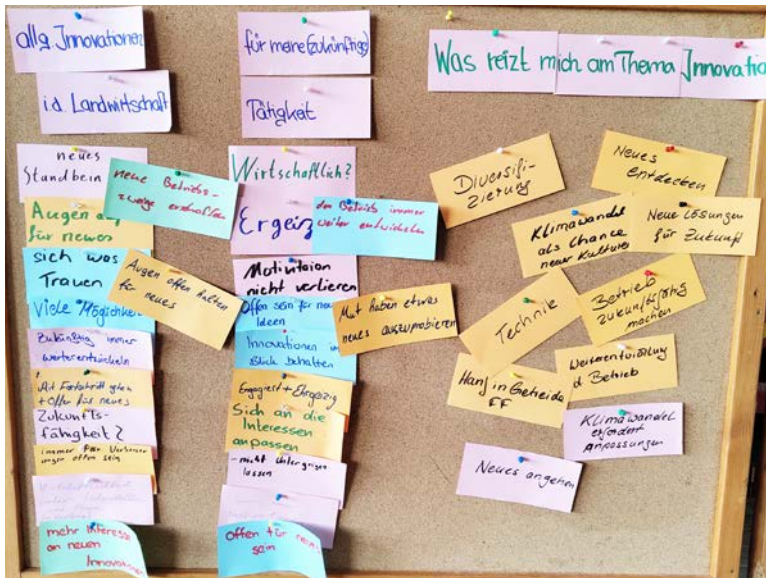 allg. Innovationen
i.d. Landwirtschaft
neues
Standbein
neue Betriebs-
zweige erschaffen
Augen auf
für neues
sich was
Trauen
Augen offen halten
für neues
Viele Möglichkeit
Zukünftig immer
weiterentwickeln
Mit Fortschritt gehen
+ Offen für neues
Zukunfts-
fähigkeit?
immer für
offen sein
mehr Interesse
an neuen
Innovationen
für meine (zukünftige)
Tätigkeit
Wirtschaftlich?
Ergeiz
den Betrieb immer
weiter entwickeln
Motivtaion
nicht verlieren
Offen sein für neue
Ideen
Mut haben etwas
neues auszuprobieren
Innovationen im
Blick behalten
Engagiert + Ehrgeizig
Sich an die
Interessen
anpassen
- nicht
lassen
offen für neues
sein
Was reizt mich am Thema Innovatio
Diversifi-
zierung
Neues
Entdecken
Klimawandel
als Chance
neuer Kulturen
Neue Lösungen
für Zukunft
Technik
Betrieb
zukunftsfähig
machen
Hanf in Getreide
FF
Weiterentwicklung
d. Betrieb
Klimawandel
erfordert
Anpassungen
Neues angehen